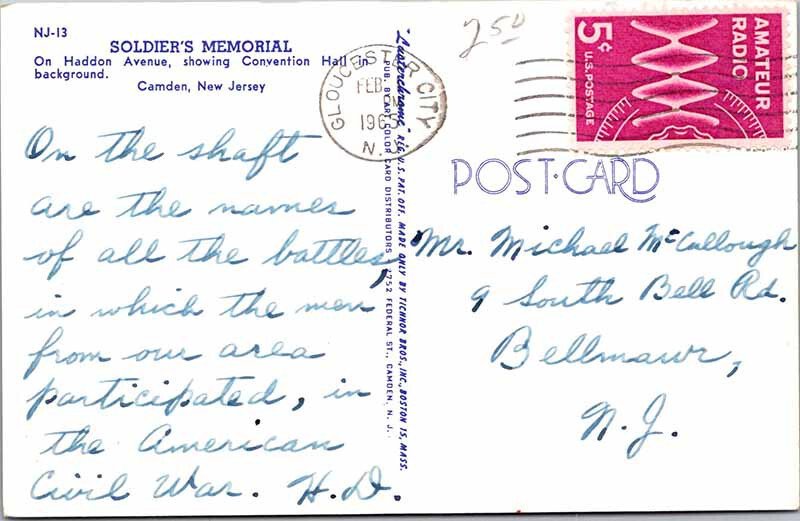 NJ-13
SOLDIER'S MEMORIAL
On Haddon Avenue, showing Convention Hall in
background.
Camden, New Jersey
On the shaft
are the names
of all the battles,
in which the men
from our area
participated, in
the American
Civil War. H.D.
"Lusterchrome" REG. U.S. PAT. OFF. MADE ONLY BY TICHNOR BROS., INC., BOSTON 15, MASS.
PUB. BY ART COLOR CARD DISTRIBUTORS 1752 FEDERAL ST., CAMDEN, N. J.
250
GLOUCESTER CITY
FEB
1965
N.
5¢
U.S. POSTAGE
AMATEUR
RADIO
POST CARD
Mr. Michael McCullough
9 South Bell Rd.
Bellmawr,
N.J.